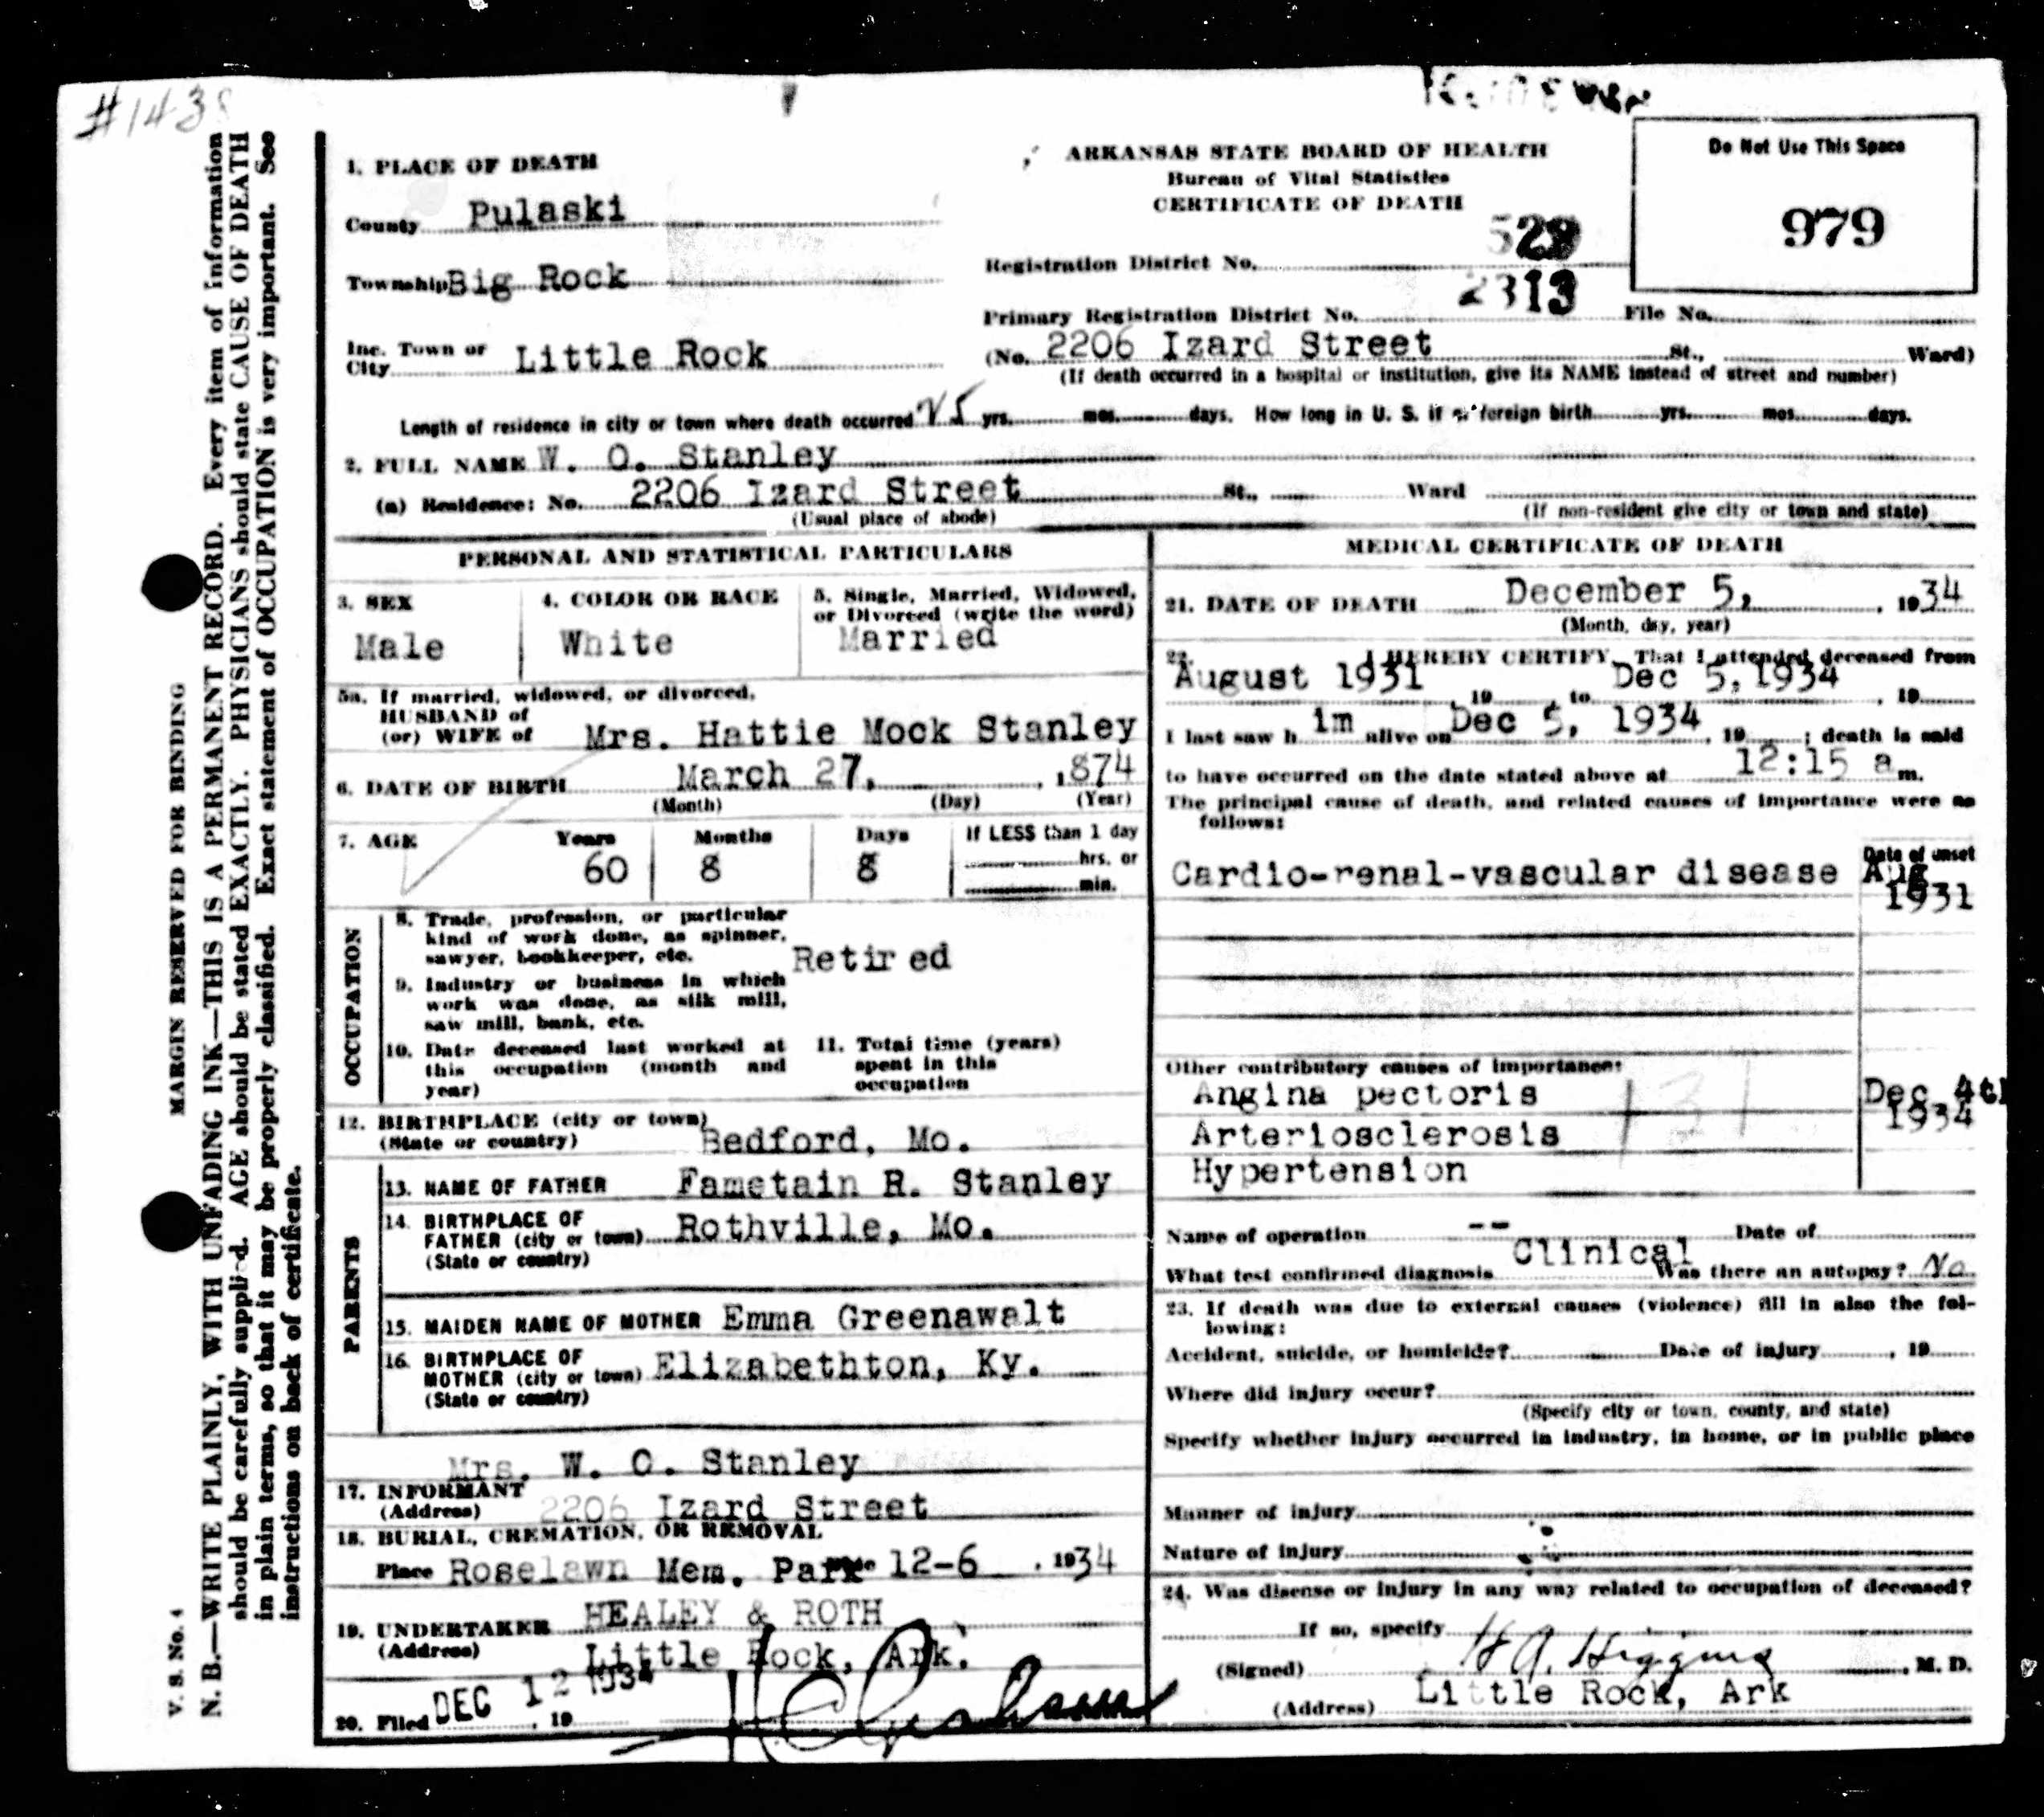 #1438
1. PLACE OF DEATH
County Pulaski
Township Big Rock
Inc. Town or City Little Rock
ARKANSAS STATE BOARD OF HEALTH
Bureau of Vital Statistics
CERTIFICATE OF DEATH
Registration District No. 529
Primary Registration District No. 2313
File No.
Do Not Use This Space
979
(No. 2206 Izard Street St., Ward)
(If death occurred in a hospital or institution, give its NAME instead of street and number)
Length of residence in city or town where death occurred 25 yrs. mos. days. How long in U. S. if of foreign birth yrs. mos. days.
2. FULL NAME W. O. Stanley
(a) Residence: No. 2206 Izard Street St., Ward
(Usual place of abode) (If non-resident give city or town and state)
PERSONAL AND STATISTICAL PARTICULARS
3. SEX
Male
4. COLOR OR RACE
White
5. Single, Married, Widowed,
or Divorced (write the word)
Married
5a. If married, widowed, or divorced,
HUSBAND of
(or) WIFE of Mrs. Hattie Mock Stanley
6. DATE OF BIRTH March 27, , 1874
(Month) (Day) (Year)
7. AGE Years Months Days If LESS than 1 day
60 8 8 hrs. or
min.
OCCUPATION
8. Trade, profession, or particular
kind of work done, as spinner,
sawyer, bookkeeper, etc. Retired
9. Industry or business in which
work was done, as silk mill,
saw mill, bank, etc.
10. Date deceased last worked at
this occupation (month and
year)
11. Total time (years)
spent in this
occupation
12. BIRTHPLACE (city or town)
(State or country) Bedford, Mo.
PARENTS
13. NAME OF FATHER Fametain R. Stanley
14. BIRTHPLACE OF
FATHER (city or town) Rothville, Mo.
(State or country)
15. MAIDEN NAME OF MOTHER Emma Greenawalt
16. BIRTHPLACE OF
MOTHER (city or town) Elizabethton, Ky.
(State or country)
Mrs. W. O. Stanley
17. INFORMANT
(Address) 2206 Izard Street
18. BURIAL, CREMATION, OR REMOVAL
Place Roselawn Mem. Park Date 12-6 , 1934
19. UNDERTAKER HEALEY & ROTH
(Address) Little Rock, Ark.
20. Filed DEC 12 1934 , 19
MEDICAL CERTIFICATE OF DEATH
21. DATE OF DEATH December 5, , 1934
(Month, day, year)
22. I HEREBY CERTIFY, That I attended deceased from
August 1931 , 19 to Dec 5, 1934 , 19
I last saw h im alive on Dec 5, 1934 , 19 ; death is said
to have occurred on the date stated above at 12:15 a m.
The principal cause of death, and related causes of importance were as
follows:
Date of onset
Cardio-renal-vascular disease Aug
1931
Other contributory causes of importance:
Angina pectoris Dec 4th
Arteriosclerosis 1934
Hypertension
131
Name of operation -- Date of
What test confirmed diagnosis Clinical Was there an autopsy? No
23. If death was due to external causes (violence) fill in also the fol-
lowing:
Accident, suicide, or homicide? Date of injury , 19
Where did injury occur?
(Specify city or town, county, and state)
Specify whether injury occurred in industry, in home, or in public place
Manner of injury
Nature of injury
24. Was disease or injury in any way related to occupation of deceased?
If so, specify
(Signed) H A. Higgins , M. D.
(Address) Little Rock, Ark
MARGIN RESERVED FOR BINDING
V. S. No. 4
N. B.—WRITE PLAINLY, WITH UNFADING INK—THIS IS A PERMANENT RECORD. Every item of information
should be carefully supplied. AGE should be stated EXACTLY. PHYSICIANS should state CAUSE OF DEATH
in plain terms, so that it may be properly classified. Exact statement of OCCUPATION is very important. See
instructions on back of certificate.